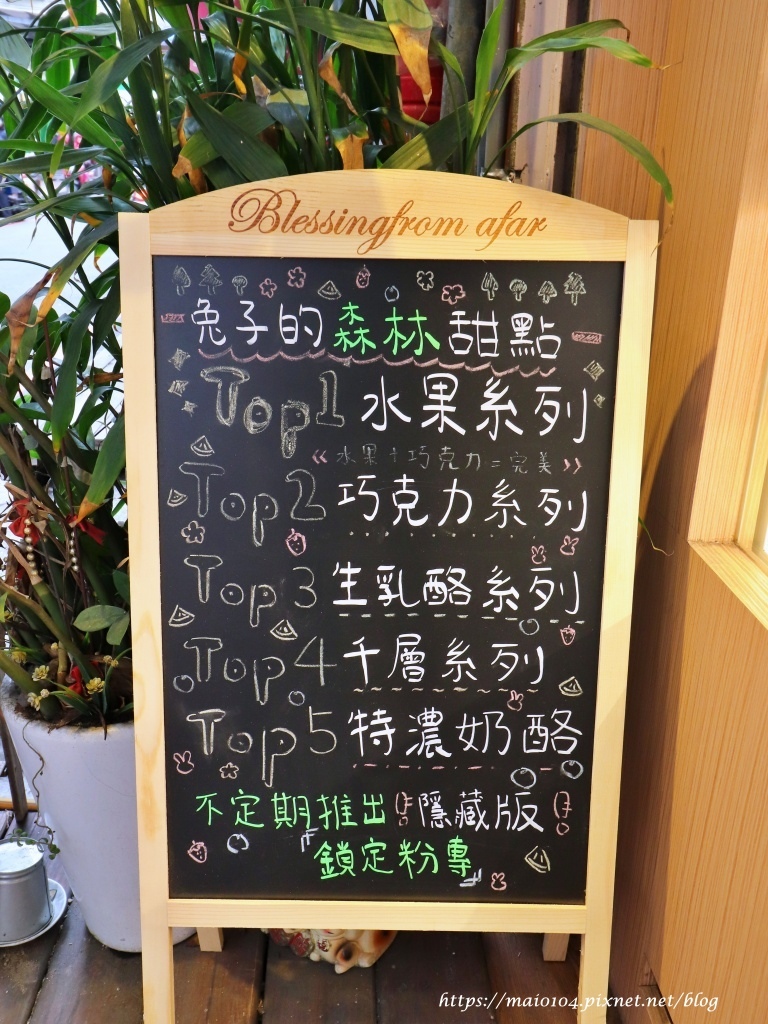 Blessingfrom afar
兔子的森林甜點
Top1 水果系列
《水果+巧克力=完美》
Top2 巧克力系列
Top3 生乳酪系列
Top4 千層系列
Top5 特濃奶酪
不定期推出 隱藏版
鎖定粉專
https://maio104.pixnet.net/blog